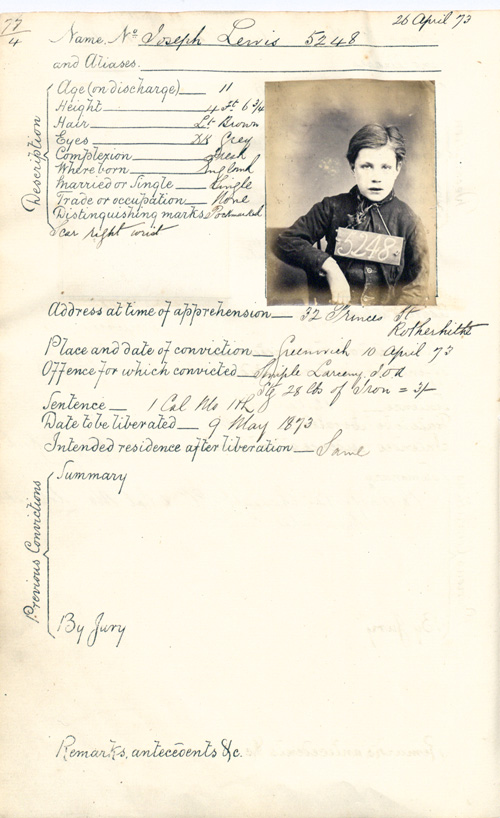 77/4
26 April 73
Name, No Joseph Lewis 5248
and Aliases.
Description
Age (on discharge) 11
Height 4 ft 6 3/4
Hair Lt Brown
Eyes Dk Grey
Complexion Fresh
Where born England
Married or Single Single
Trade or occupation None
Distinguishing marks Pockmarked
Scar right wrist
5248.
Address at time of apprehension 32 Princes St
Rotherhithe
Place and date of conviction Greenwich 10 April 73
Offence for which convicted Simple Larceny
Stg 28 lbs of Iron = 3/-
Sentence 1 Cal Mo
Date to be liberated 9 May 1873
Intended residence after liberation Same
Previous Convictions
Summary
By Jury
Remarks, antecedents &c.